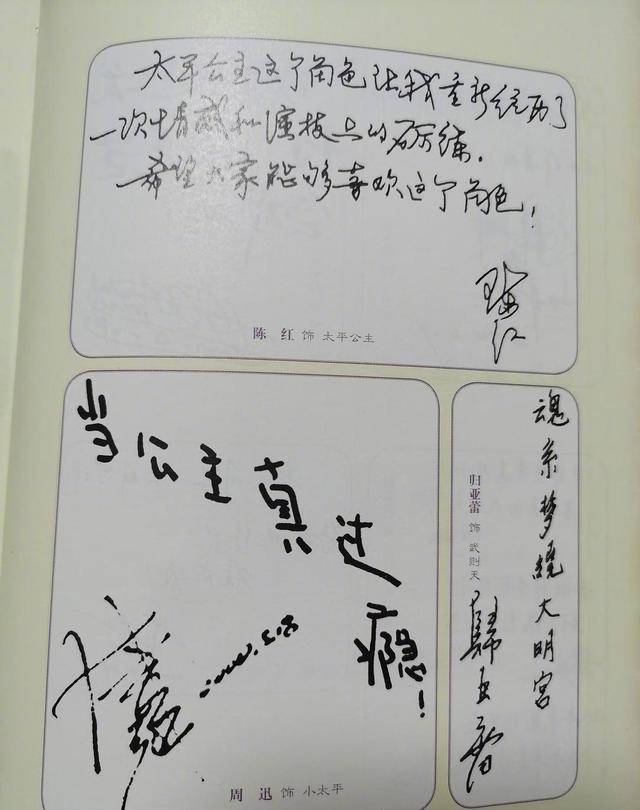 太平公主这个角色让我重新经历了
一次情感和演技上的磨练.
希望大家能够喜欢这个角色!
陈红
陈 红 饰 太平公主
当公主真过瘾!
周迅
周 迅 饰 小太平
魂系梦绕大明宫
归亚蕾 饰 武则天
歸亞蕾